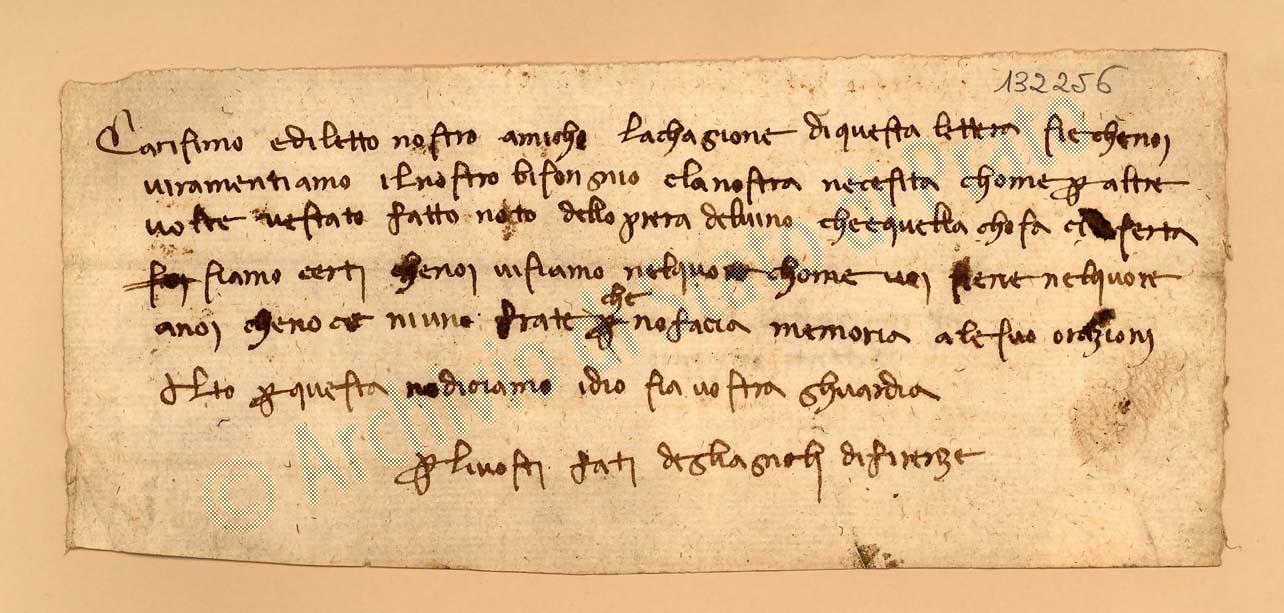 132256
Carisimo e diletto nostro amicho lachagione di questa lettera sie chenoi
viramentiamo ilnostro bisongnio ela nostra necesita chome p altre
volte vestato fatto noto dello prera delvino cheequella chosa
siamo certi chenoi visiamo nelquore chome voi siene nelquore
anoi cheno ce niuno frate che nofacia memoria a le suo orazioni
Alto p questa nodiciamo idio sia vostra ghuardia
p li vostri frati degliagnioli di firenze
© Archivio di Stato di Prato